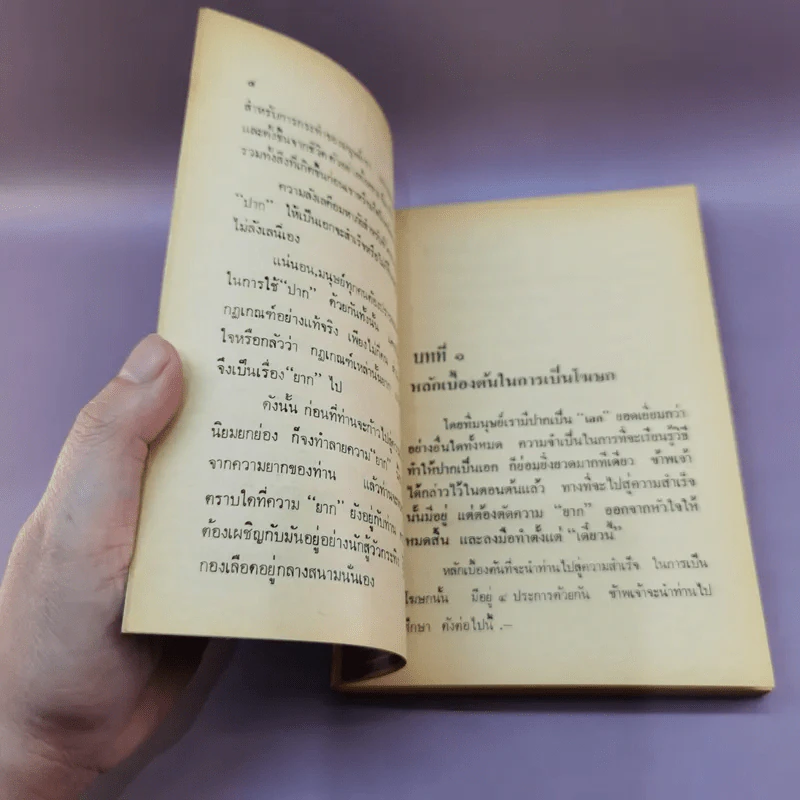 ๘
สำหรับการกระทำของมนุษย์เรา
และดังขึ้นจากชีวิต
รวมทั้งสิ่งที่เกิดขึ้นก่อน
ความลังเลคือ
“ปาก” ให้เป็นเอกจะสำเร็จหรือไม่
ไม่ลังเลนี่เอง
แน่นอน,มนุษย์ทุกคนต้อง
ในการใช้“ปาก” ด้วยกันทั้งนั้น
กฎเกณฑ์อย่างแท้จริง เพียงไม่
ใจหรือกลัวว่า กฎเกณฑ์เหล่านั้น
จึงเป็นเรื่อง“ยาก” ไป
ดังนั้น ก่อนที่ท่านจะก้าวไปสู่
นิยมยกย่อง ก็จงทำลายความ“ยาก”
จากความยากของท่าน แล้วท่าน
ตราบใดที่ความ “ยาก” ยังอยู่กับท่าน
ต้องเผชิญกับมันอยู่อย่างนักสู้วัวกระทิง
กองเลือดอยู่กลางสนามนั่นเอง
บทที่ ๑
หลักเบื้องต้นในการเป็นโฆษก
โดยที่มนุษย์เรามีปากเป็น “เอก” ยอดเยี่ยมกว่า
อย่างอื่นใดทั้งหมด ความจำเป็นในการที่จะเรียนรู้วิธี
ทำให้ปากเป็นเอก ก็ย่อมยิ่งยวดมากทีเดียว ข้าพเจ้า
ได้กล่าวไว้ในตอนต้นแล้ว ทางที่จะไปสู่ความสำเร็จ
นั้นมีอยู่ แต่ต้องตัดความ “ยาก” ออกจากหัวใจให้
หมดสิ้น และลงมือทำตั้งแต่ “เดี๋ยวนี้”
หลักเบื้องต้นที่จะนำท่านไปสู่ความสำเร็จ ในการเป็น
โฆษกนั้น มีอยู่ ๔ ประการด้วยกัน ข้าพเจ้าจะนำท่านไป
ศึกษา ดังต่อไปนี้ .–